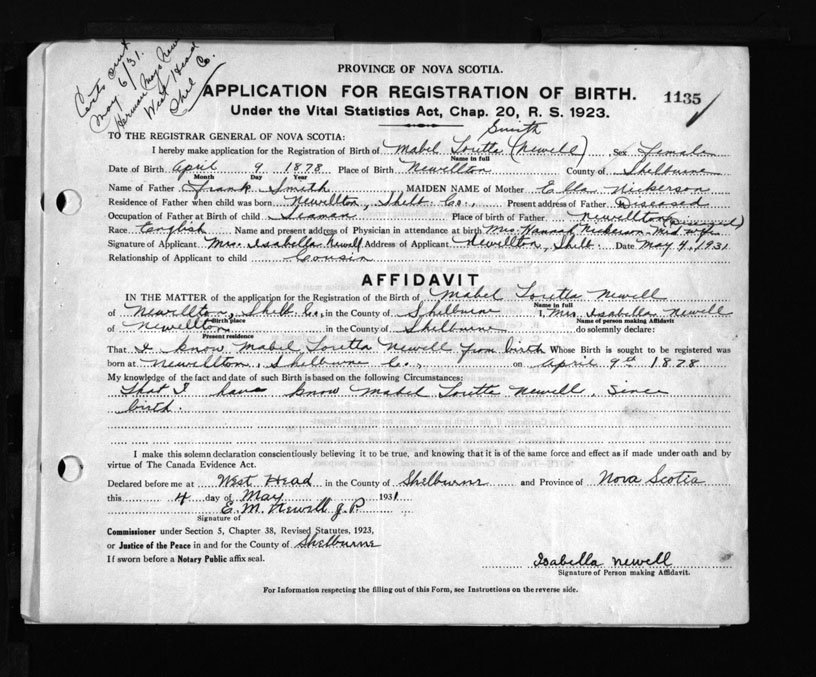 Certs sent
May 6/31.
Herman
West Head
Shel Co.
PROVINCE OF NOVA SCOTIA.
APPLICATION FOR REGISTRATION OF BIRTH. 1135
Under the Vital Statistics Act, Chap. 20, R. S. 1923.
TO THE REGISTRAR GENERAL OF NOVA SCOTIA:
Smith
I hereby make application for the Registration of Birth of Mabel Loretta (Newell) Sex Female
Name in full
Date of Birth April 9 1878 Place of Birth Newellton County of Shelburne
Month Day Year
Name of Father Frank Smith MAIDEN NAME of Mother Ella Nickerson
Residence of Father when child was born Newellton, Shelb. Co., Present address of Father Diseased
Occupation of Father at Birth of child Seaman Place of birth of Father Newellton (Diseased)
Race English Name and present address of Physician in attendance at birth Mrs. Hannah Nickerson Mid wife
Signature of Applicant Mrs. Isabella Newell Address of Applicant Newellton, Shelb. Date May 4, 1931
Relationship of Applicant to child Cousin
AFFIDAVIT
IN THE MATTER of the application for the Registration of the Birth of Mabel Loretta Newell
Name in full
of Newellton, Shelb Co., in the County of Shelburne I, Mrs Isabella Newell
Birth place Name of person making Affidavit
of Newellton in the County of Shelburne do solemnly declare:
Present residence
That I know Mabel Loretta Newell from birth Whose Birth is sought to be registered was
born at Newellton, Shelburne Co., on April 9th 1878
My knowledge of the fact and date of such Birth is based on the following Circumstances:
That I have know Mabel Loretta Newell, since
birth.
I make this solemn declaration conscientiously believing it to be true, and knowing that it is of the same force and effect as if made under oath and by
virtue of The Canada Evidence Act.
Declared before me at West Head in the County of Shelburne and Province of Nova Scotia
this 4 day of May 1931
E. M. Newell J. P.
Signature of
Commissioner under Section 5, Chapter 38, Revised Statutes, 1923,
or Justice of the Peace in and for the County of Shelburne
If sworn before a Notary Public affix seal.
Isabella Newell
Signature of Person making Affidavit.
For Information respecting the filling out of this Form, see Instructions on the reverse side.